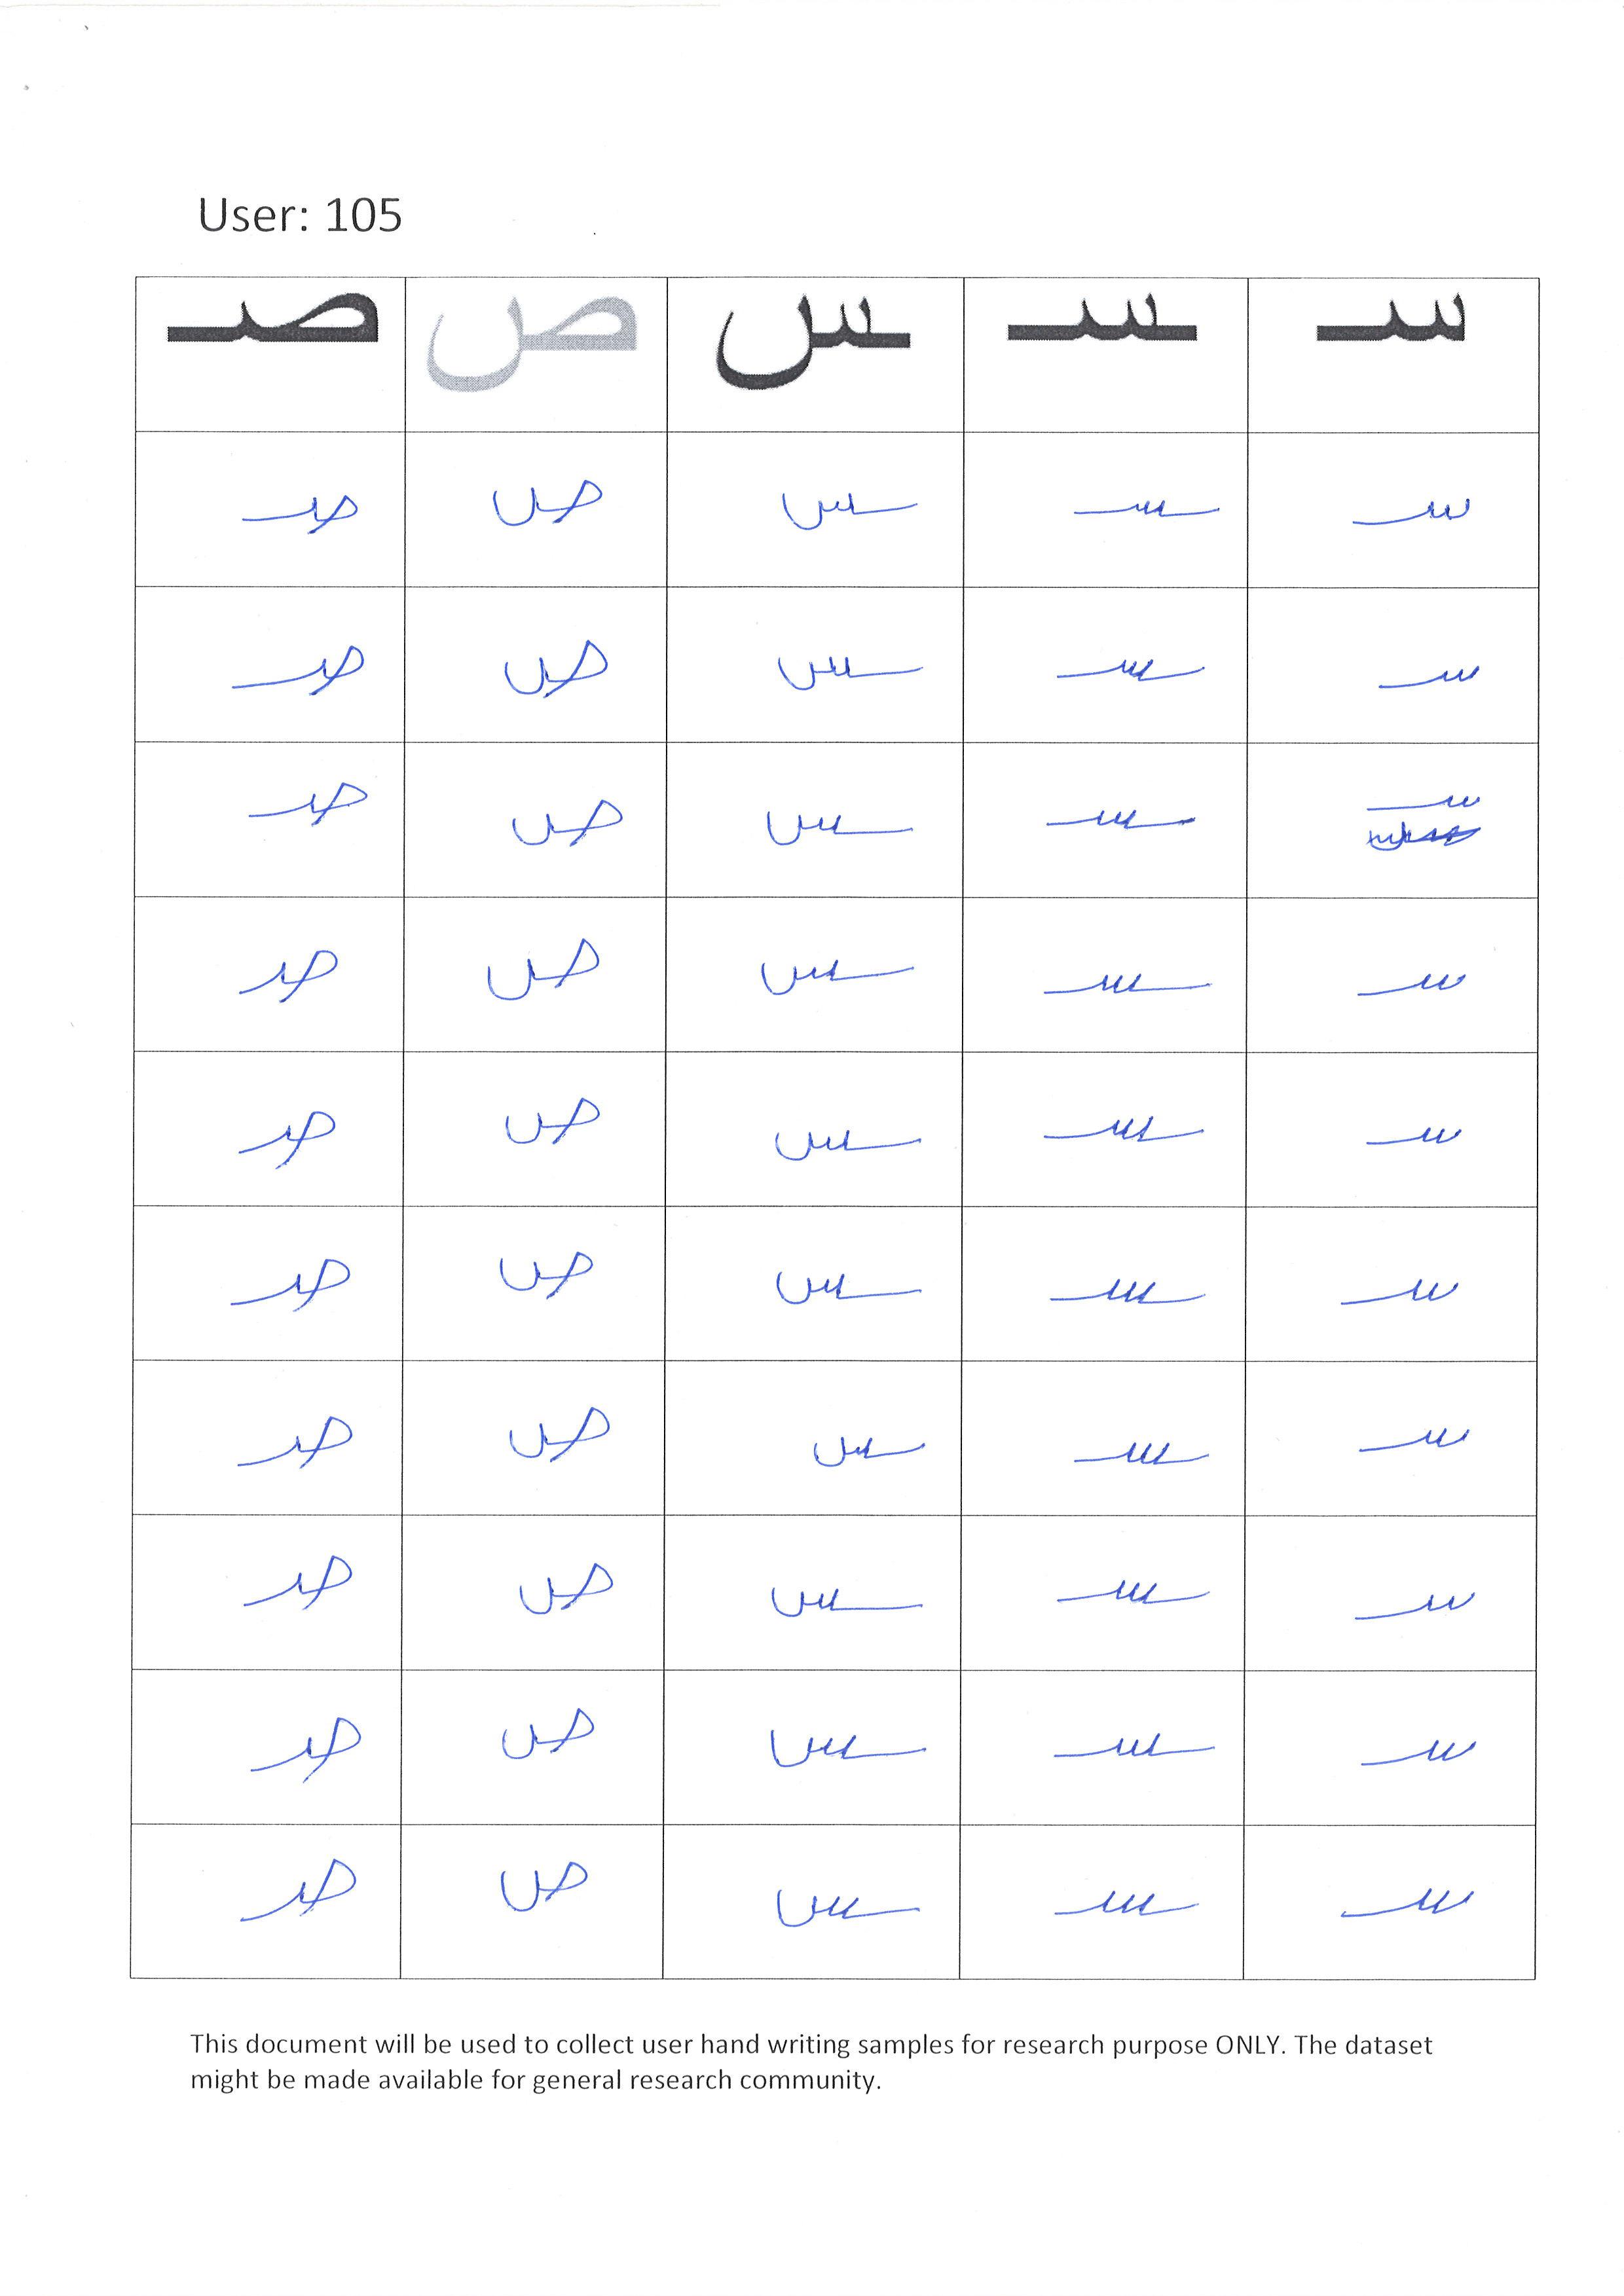 User: 105
سـ ـسـ ـس ص صـ
سـ ـسـ ـس ص صـ
سـ ـسـ ـس ص صـ
سـ ـسـ ـس ص صـ
سـ ـسـ ـس ص صـ
سـ ـسـ ـس ص صـ
سـ ـسـ ـس ص صـ
سـ ـسـ ـس ص صـ
سـ ـسـ ـس ص صـ
سـ ـسـ ـس ص صـ
سـ ـسـ ـس ص صـ
This document will be used to collect user hand writing samples for research purpose ONLY. The dataset
might be made available for general research community.